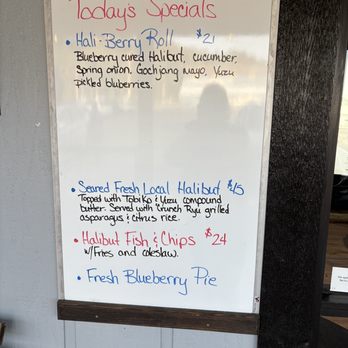 Today's Specials
• Hali-Berry Roll $21
Blueberry cured Halibut, cucumber,
Spring onion, Gochjang mayo, Yuzu
pickled bluberries.
• Seared Fresh Local Halibut $45
Topped with Tobiko & Yuzu compound
butter. Served with Crunch Ryu grilled
asparagus & citrus rice.
• Halibut Fish & Chips $24
w/Fries and coleslaw.
• Fresh Blueberry Pie